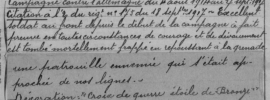 Campagne contre l'Allemagne du 4 août 1914 au 9 sept 1917
Citation à l'o. du régt n° 178 du 18 septbre 1917 - Excellent
soldat au front depuis le début de la campagne a fait
preuve en toutes circonstances de courage et de dévouement
est tombé mortellement frappé en repoussant à la grenade
une patrouille ennemie qui s'était ap-
prochée de nos lignes.
Décoration "Croix de guerre étoile de Bronze"